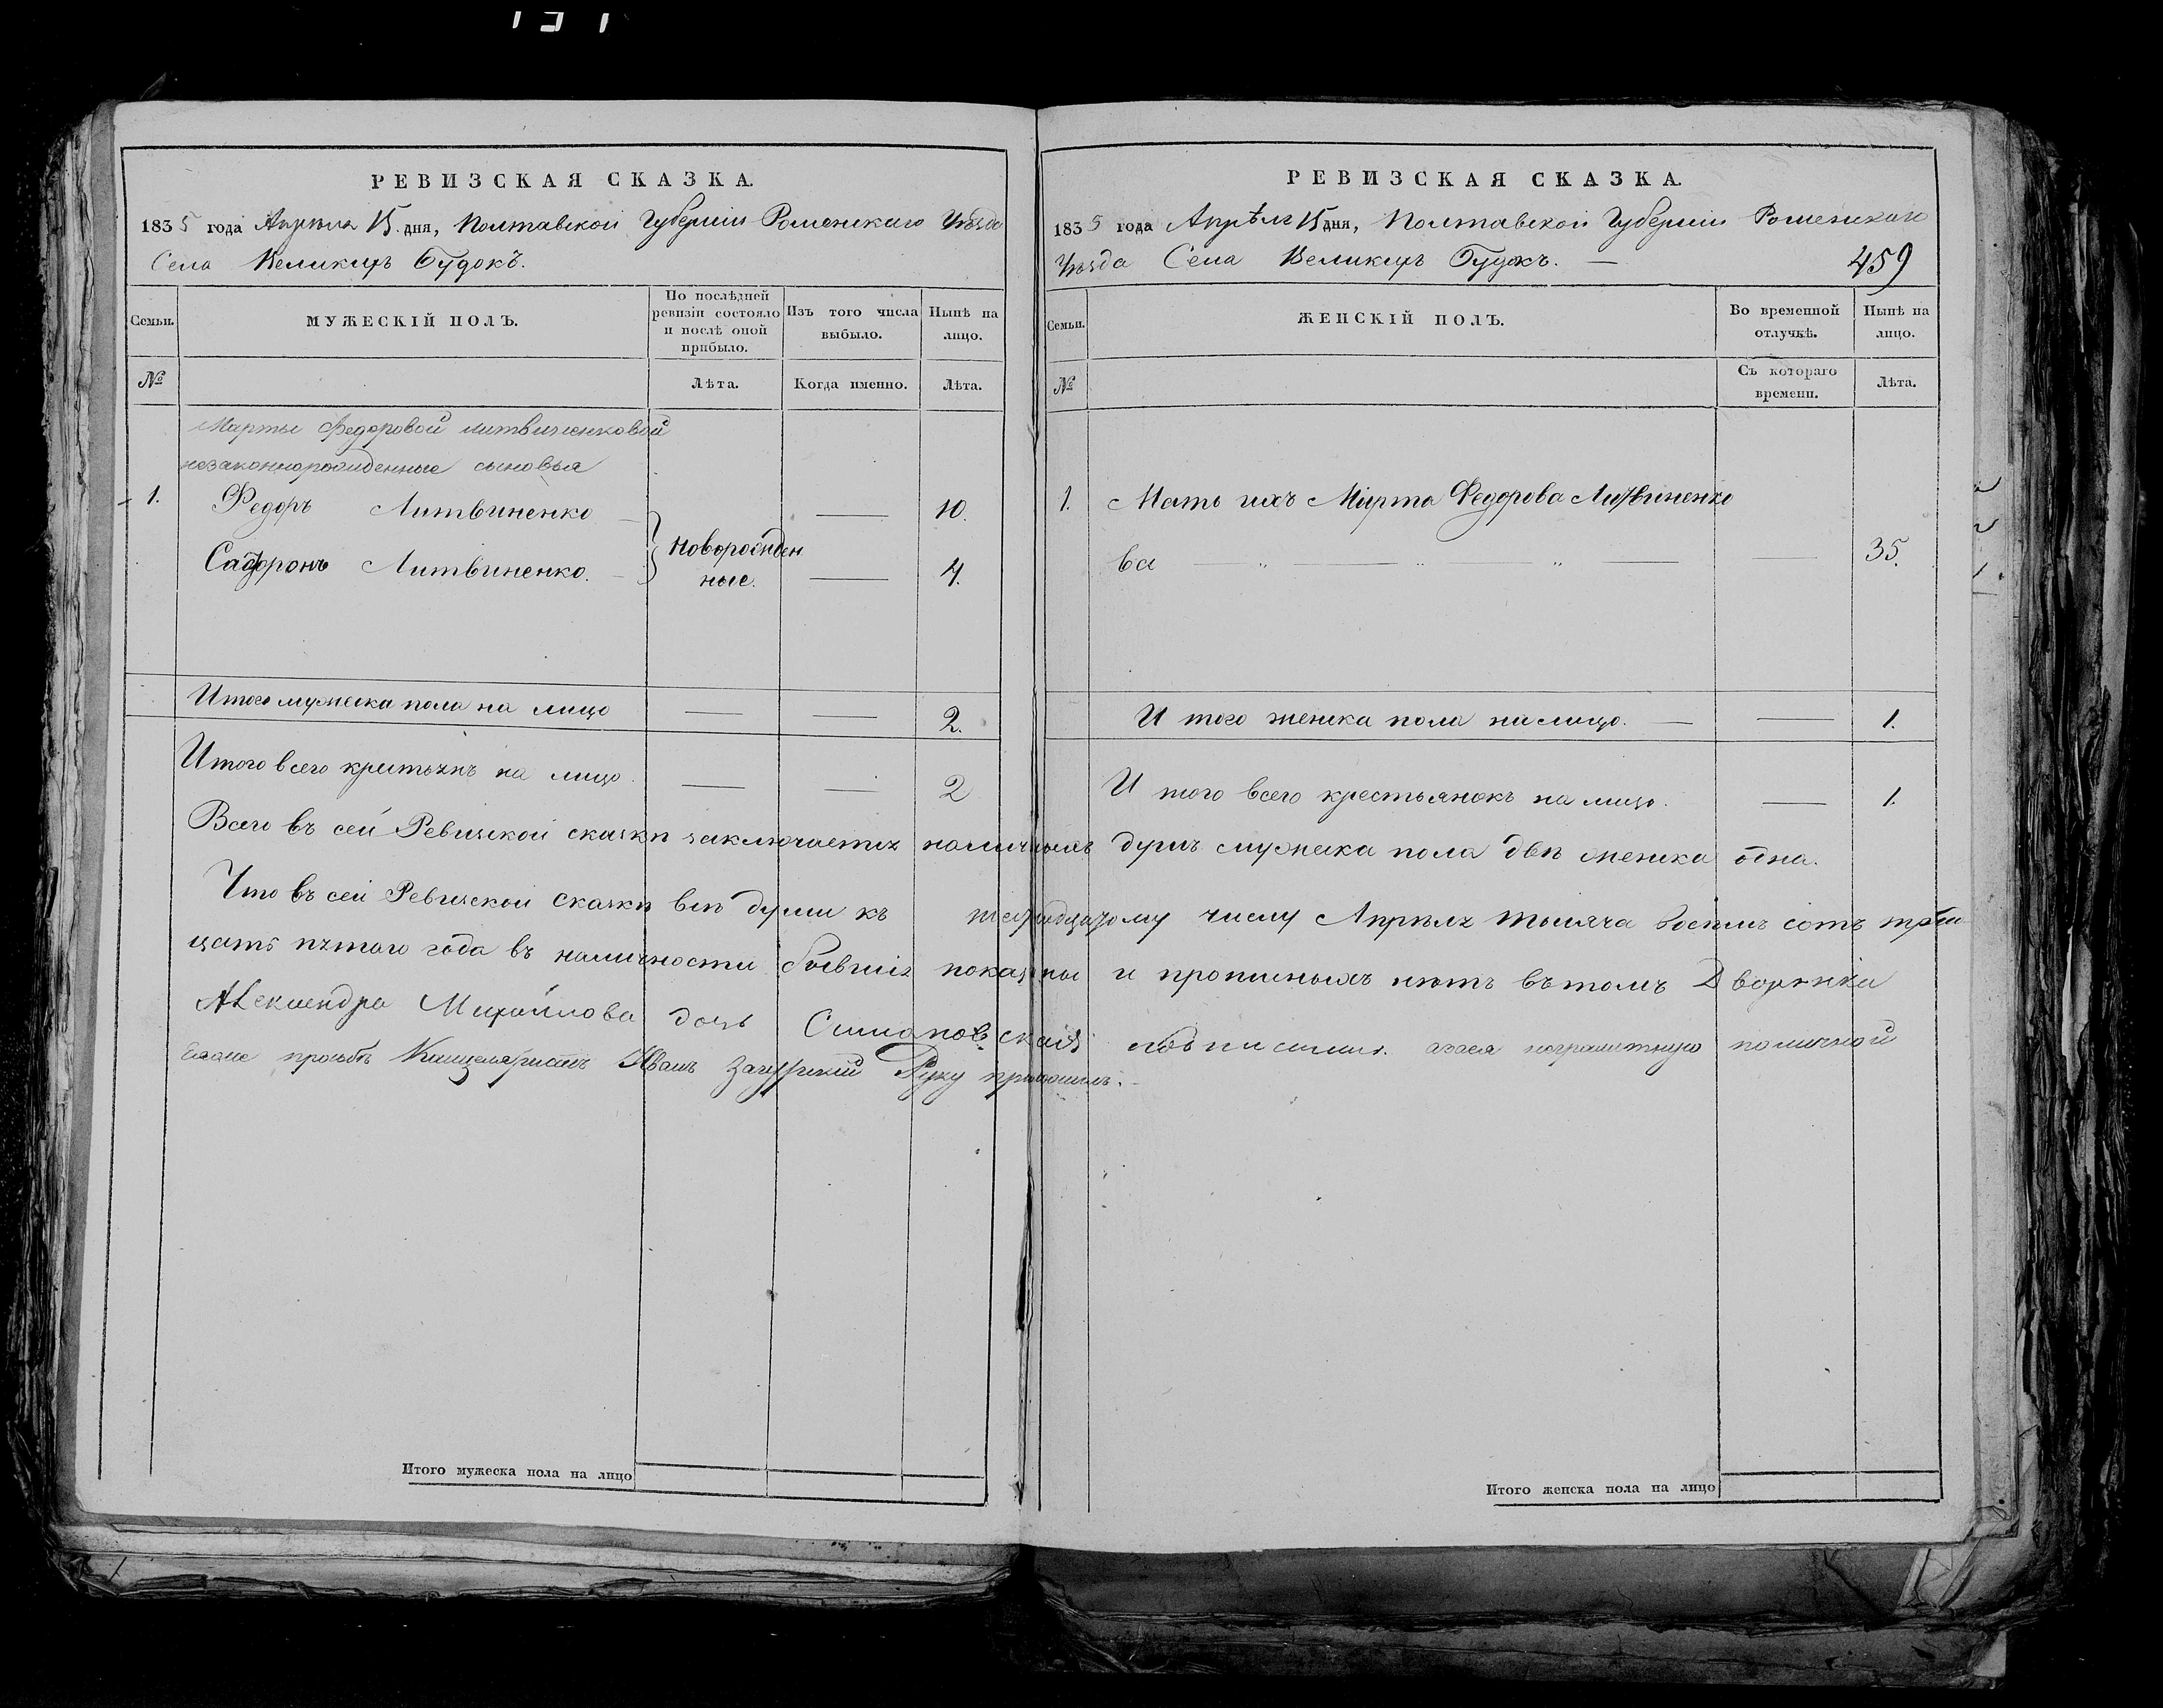 РЕВИЗСКАЯ СКАЗКА.
1835 года Апрѣля 15 дня, Полтавской Губерніи Роменскаго Уѣзда
Села Великихъ Будокъ.
Семьи.
МУЖЕСКІЙ ПОЛЪ.
По послѣдней ревизіи состояло и послѣ оной прибыло.
Изъ того числа выбыло.
Нынѣ на лицо.
№
Лѣта.
Когда именно.
Лѣта.
Марты Федоровой Литвиненковой
незаконнорожденные сыновья
1. Федоръ Литвиненко — 10.
Софронъ Литвиненко. — 4.
Новорожден
ные.
Итого мужеска пола на лицо — — 2.
Итого всего крестьянъ на лицо. — — 2
РЕВИЗСКАЯ СКАЗКА.
1835 года Апрѣля 15 дня, Полтавской Губерніи Роменскаго
Уѣзда Села Великихъ Будокъ. —
459
Семьи.
ЖЕНСКІЙ ПОЛЪ.
Во временной отлучкѣ.
Нынѣ на лицо.
№
Съ котораго времени.
Лѣта.
1. Мать ихъ Марта Федорова Литвиненко
ва — „ — „ — „ — — 35.
И того женска пола на лицо. — — 1.
И того всего крестьянокъ на лицо. — 1.
Всего въ сей Ревизской сказки заключается наличныхъ душъ мужеска пола двѣ женска одна.
Что въ сей Ревизской Сказки всѣ души къ числу Апрѣля тысяча восемь сотъ трид
цать пятого года въ наличности бывшія показаны и прописныхъ нѣтъ въ томъ Дворянка
Александра Михайлова дочь подписалась. а за ея неграмотную по личной
Ея же прозьбѣ Канцеляристъ Иванъ Руку приложилъ.
Итого мужеска пола на лицо
Итого женска пола на лицо